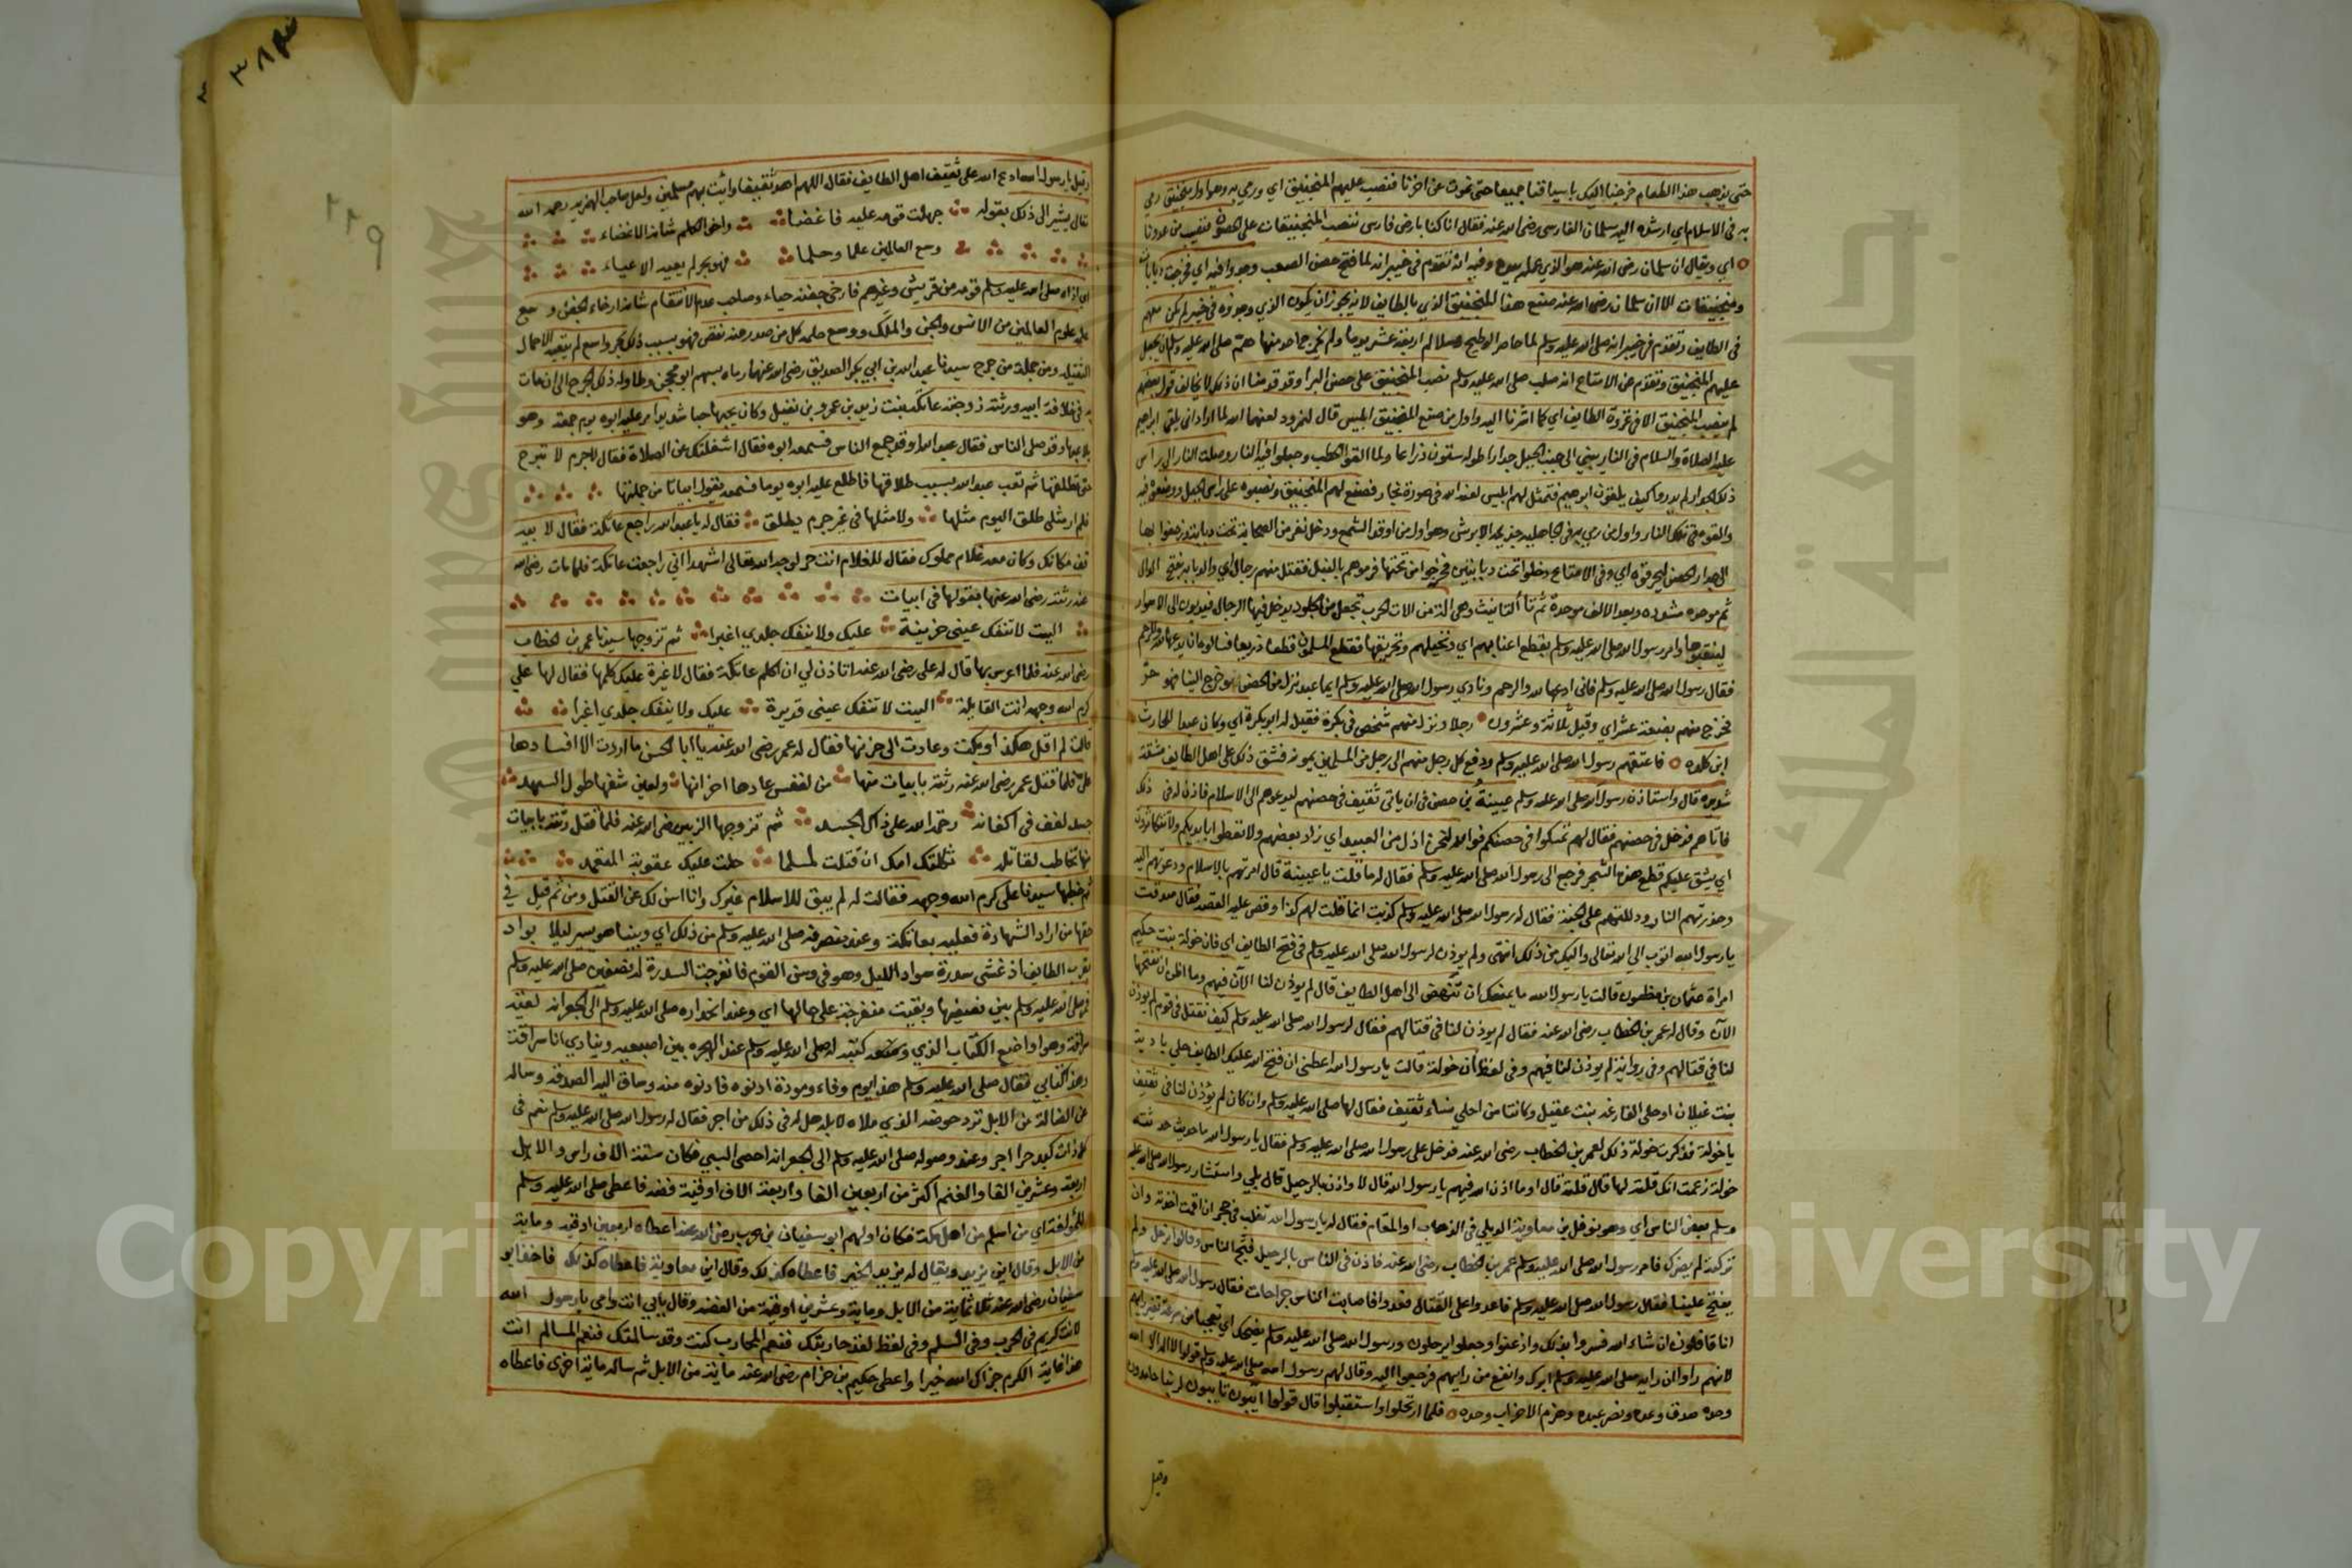 حتى يذهب هذا الطعام خرجنا اليك باسيافنا جميعا حتى نموت عن اخرنا فنصب عليهم المنجنيق اي ورمي به وهو اول منجنيق رمي
به في الاسلام اي ارشده اليه سلمان الفارسي رضي الله عنه فقال انا كنا بارض فارس ننصب المنجنيقات على الحصون فنصيب من عدونا
اي ويقال ان سلمان رضي الله عنه هو الذي عمله بيده وفيه انه تقدم في خيبر انه لما فتح حصن الصعب وجدوا فيه اي فخرجت دبابات
ومنجنيقات الا ان سلمان رضي الله عنه صنع هذا المنجنيق الذي بالطايف لانه يجوز ان يكون الذي وجدوه في خيبر لم يكن معهم
في الطايف وتقدم في خيبر انه صلى الله عليه وسلم لما حاصر الوطيح وسلالم اربعة عشر يوما ولم يخرج احد منها همّ صلى الله عليه وسلم ان يجعل
عليهم المنجنيق وتقدم عن الامتاع انه صلى الله عليه وسلم نصب المنجنيق على حصن البرا وقد قدمنا ان ذلك لا يخالف قول بعضهم
لم ينصب المنجنيق الا في غزوة الطايف اي كما اشرنا اليه واول من صنع المنجنيق ابليس قال لنمرود لعنهما الله لما ارادا ان يلقى ابراهيم
عليه الصلاة والسلام في النار بنى الى جنب الجبل جدارا طوله ستون ذراعا ولما القوا الحطب وجعلوا فيه النار وصلت النار الى راس
ذلك الجدار لم يدروا كيف يلقون ابراهيم فتمثل لهم ابليس لعنه الله في صورة نجار فصنع لهم المنجنيق ونصبوه على راس الجبل ووضعوه فيه
والقوه في تلك النار واول من رمي به في الجاهلية جذيمة الابرش وهو اول من اوقد الشمع ودخل نفر من الصحابة تحت دبابة وزحفوا بها
الى جدار الحصن ليحرقوه اي وفي الامتاع دخلوا تحت دبابتين فخرجوا من تحتها فرموهم بالنبل فقتل منهم رجال اي والدبابه بفتح الدال
ثم موحده مشدده وبعد الالف موحدة ثم تاء التانيث وهي الة من الات الحرب تجعل من الجلود يدخل فيها الرجال فيدبون الى الاسوار
لينقبوها وامر رسول الله صلى الله عليه وسلم بقطع اعنابهم اي ونخيلهم وتحريقها فقطع المسلمون قطعا ذريعا فسالوه ان يدعها لله وللرحم
فقال رسول الله صلى الله عليه وسلم فاني ادعها لله والرحم ونادي رسول الله صلى الله عليه وسلم ايما عبد نزل من الحصن وخرج الينا فهو حرّ
فخرج منهم بضعة عشر اي وقيل ثلاثة وعشرون رجلا ونزل منهم شخص في بكرة فقيل له ابو بكرة اي وكان عبدا للحارث
ابن كلده فاعتقهم رسول الله صلى الله عليه وسلم ودفع كل رجل منهم الى رجل من المسلمين يمونه فشق ذلك على اهل الطايف مشقة
شديده قال واستاذن رسول الله صلى الله عليه وسلم عيينة بن حصن في ان ياتي ثقيف في حصنهم ليدعوهم الى الاسلام فاذن له في ذلك
فاتاهم فدخل في حصنهم فقال لهم تمسكوا في حصنكم فوالله لنحن اذل من العبيد اي زاد بعضهم ولا تعطوا بايديكم ولا تتكاثرون
اي يشق عليكم قطع هذا الشجر فرجع الى رسول الله صلى الله عليه وسلم فقال له ما قلت يا عيينة قال امرتهم بالاسلام ودعوتهم اليه
وحذرتهم النار ودللتهم على الجنة فقال له رسول الله صلى الله عليه وسلم كذبت انما قلت لهم كذا وقص عليه القصة فقال صدقت
يا رسول الله اتوب الى الله تعالى واليك من ذلك انتهى ولم يوذن لرسول الله صلى الله عليه وسلم في فتح الطايف اي فان خولة بنت حكيم
امراة عثمان بن مظعون قالت يا رسول الله ما يمنعك ان تنهض الى اهل الطايف قال لم يوذن لنا الان فيهم وما اظن ان نفتحها
الآن وقال له عمر بن الخطاب رضي الله عنه فقال لم يوذن لنا في قتالهم فقال لرسول الله صلى الله عليه وسلم كيف نقتل في قوم لم يوذن
لنا في قتالهم وفي رواية لم يوذن لنا فيهم وفي لفظ ان خولة قالت يا رسول الله اعطني ان فتح الله عليك الطايف حلي بادية
بنت غيلان او حلي الفارعه بنت عقيل وكانتا من احلى نساء ثقيف فقال لها صلى الله عليه وسلم وان كان لم يؤذن لنا في ثقيف
يا خولة فذكرت خولة ذلك لعمر بن الخطاب رضي الله عنه فدخل على رسول الله صلى الله عليه وسلم فقال يا رسول الله ما حديث حدثته
خولة زعمت انك قلته لها قال قلته قال اوما اذن الله فيهم يا رسول الله قال لا واذن بالرحيل قال بلي واستشار رسول الله صلى الله عليه
وسلم بعض الناس اي وهو نوفل بن معاوية الديلي في الذهاب او المقام فقال له يا رسول الله ثعلب في جحر ان اقمت اخذته وان
تركته لم يضرك فامر رسول الله صلى الله عليه وسلم عمر بن الخطاب رضي الله عنه فاذن في الناس بالرحيل فضج الناس وقالوا نرحل ولم
يفتح علينا فقال رسول الله صلى الله عليه وسلم فاغدوا على القتال فغدوا فاصابت الناس جراحات فقال رسول الله صلى الله عليه وسلم
انا قافلون ان شاء الله فسروا بذلك واذعنوا وجعلوا يرحلون ورسول الله صلى الله عليه وسلم يضحك اي تعجبا من سرعة تغير رايهم
لانهم راوا ان رايه صلى الله عليه وسلم ابرك وانفع من رايهم فرجعوا اليه وقال لهم رسول الله صلى الله عليه وسلم قولوا لا اله الا الله
وحده صدق وعده ونصر عبده وهزم الاحزاب وحده فلما ارتحلوا واستقبلوا قال قولوا آيبون تايبون لربنا حامدون
وقيل
٣٨٣
٢٢٩
وقيل يا رسول الله ادع الله على ثقيف اهل الطايف فقال اللهم اهد ثقيفا وائت بهم مسلمين ولعل صاحب الهمزيه رحمه الله
تعالى يشير الى ذلك بقوله جهلت قومه عليه فاغضا واخو الحلم شانه الاغضاء
وسع العالمين علما وحلما فهو بحر لم يعيه الاعياء
اي اذاه صلى الله عليه وسلم قومه من قريش وغيرهم فارخى جفنه حياء وصاحب عدم الانتقام شانه ارخاء الجفن وسع
علمه علوم العالمين من الانس والجن والملك ووسع حلمه كل من صدر منه نقص فهو بسبب ذلك بحر واسع لم تتعبه الاحمال
الثقيله ومن جملة من جرح سيدنا عبد الله بن ابي بكر الصديق رضي الله عنهما رماه بسهم ابو محجن وطاوله ذلك الجرح الى ان مات
به في خلافة ابيه ورثته زوجته عاتكه بنت زيد بن عمرو بن نفيل وكان يحبها حبا شديدا مر عليه ابوه يوم جمعة وهو
يلاعبها وقد صلى الناس فقال عبد الله اوقد جمع الناس فسمعه ابوه فقال اشغلتك عن الصلاة فقال لاجرم لا تبرح
حتى تطلقها ثم تعب عبد الله بسبب طلاقها فاطلع عليه ابوه يوما فسمعه يقول ابياتا من جملتها
فلم ار مثلي طلق اليوم مثلها ولا مثلها في غير جرم يطلق فقال له يا عبد الله راجع عاتكة فقال لابيه
قف مكانك وكان معه غلام مملوك فقال للغلام انت حر لوجه الله تعالى اشهد اني راجعت عاتكة فلما مات رضي الله
عنه رثته رضي الله عنها بقولها في ابيات
اليت لا تنفك عيني حزينة عليك ولا ينفك جلدي اغبرا ثم تزوجها سيدنا عمر بن الخطاب
رضي الله عنه فلما اعرس بها قال له على رضي الله عنه اتاذن لي ان اكلم عاتكة فقال لا غيرة عليك كلمها فقال لها علي
كرم الله وجهه انت القايلة اليت لا تنفك عيني قريرة عليك ولا ينفك جلدي اغبرا
قالت لم اقل هكذا وبكت وعادت الى حزنها فقال له عمر رضي الله عنه يا ابا الحسن ما اردت الا افسادها
علي فلما قتل عمر رضي الله عنه رثته بابيات منها من لنفس عادها احزانها ولعين شفها طول السهد
جسد لفف في اكفانه رحمة الله على ذاك الجسد ثم تزوجها الزبير رضي الله عنه فلما قتل رثته بابيات
منها تخاطب لقاتله ثكلتك امك ان قتلت لمسلما حلت عليك عقوبة المتعمد
ثم خطبها سيدنا علي كرم الله وجهه فقالت له لم يبق للاسلام غيرك وانا انفس لك عن القتل ومن ثم قيل في
حقها من اراد الشهادة فعليه بعاتكة وعند منصرفه صلى الله عليه وسلم من ذلك اي وبينا هو يسير ليلا بواد
بقرب الطايف اذ غشي سدرة سواد الليل وهو في وسن النوم فانفرجت السدرة له نصفين صلى الله عليه وسلم
فمر صلى الله عليه وسلم بين نصفيها وبقيت منفرجة على حالها اي وعند انحداره صلى الله عليه وسلم الى الجعرانه لقيه
سراقة وهو واضع الكتاب الذي كتبه له صلى الله عليه وسلم عند الهجره بين اصبعيه وينادي انا سراقة
وهذا كتابي فقال صلى الله عليه وسلم هذا يوم وفاء ومودة ادنوه فادنوه منه وساق اليه الصدقة وساله
عن الضالة من الابل ترد حوضه الذي ملاه لابله هل له في ذلك من اجر فقال له رسول الله صلى الله عليه وسلم نعم في
كل ذات كبد حرا اجر وعند وصوله صلى الله عليه وسلم الى الجعرانه احصى السبي فكان ستة الاف راس والابل
اربعة وعشرين الفا والغنم اكثر من اربعين الفا واربعة الاف اوقية فضه فاعطى صلى الله عليه وسلم
المؤلفة اي من اسلم من اهل مكة فكان اولهم ابو سفيان بن حرب رضي الله عنه اعطاه اربعين اوقيه وماية
من الابل وقال ابني يزيد ويقال له يزيد الخير فاعطاه كذلك وقال ابني معاوية فاعطاه كذلك فاخذ ابو
سفيان رضي الله عنه ثلاثماية من الابل وماية وعشرين اوقية من الفضه وقال بابي انت وامي يا رسول الله
لانت كريم في الحرب وفي السلم وفي لفظ لقد حاربتك فنعم المحارب كنت وقد سالمتك فنعم المسالم انت
هذا غاية الكرم جزاك الله خيرا واعطى حكيم بن حزام رضي الله عنه ماية من الابل ثم ساله ماية اخرى فاعطاه
Copyright © King Saud University
جامعة الملك سعود